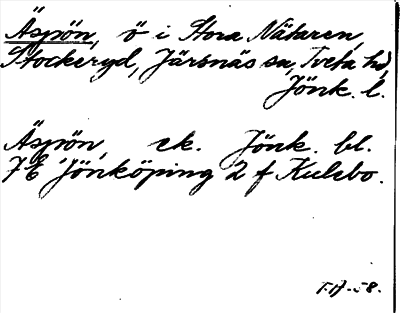 Äspön, ö i Stora Nätaren,
Stockeryd, Järsnäs sn, Tveta hd,
Jönk. l.
Äspön, ek. Jönk. bl.
7 E Jönköping 2 f Kulebo.